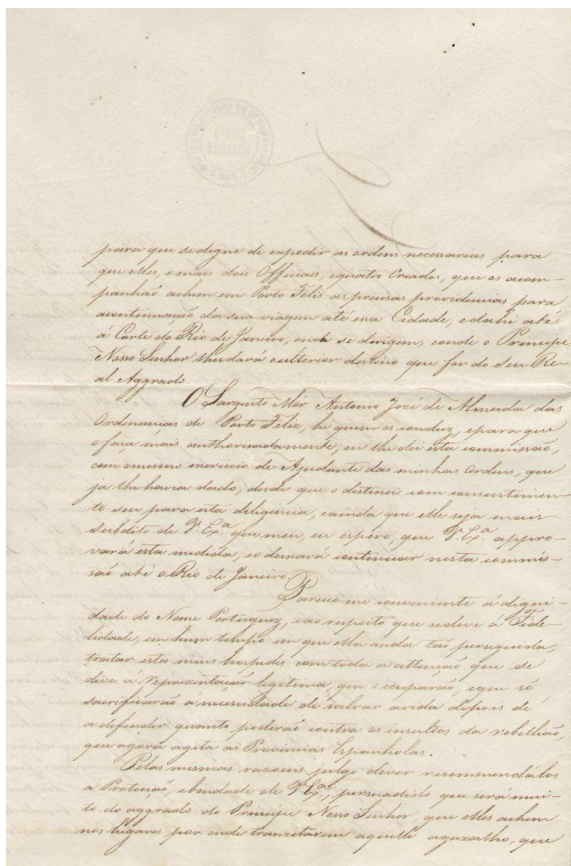 para que se digne de expedir as ordens necessarias para
que elles, e mais dois Officiaes, e quatro Creados, que os acom-
panhão achem em Porto Feliz as precisas providencias para
a continuação da sua viagem até essa Cidade, e dahi até
á Corte do Rio de Janeiro, onde se dirigem, e onde o Principe
Nosso Senhor lhes dará o ulterior destino que for do seu Re-
al Aggrado.
O Sargento Mór Antonio José de Almeida das
Ordenanças de Porto Feliz, he quem os conduz, e para que
o faça mais authorisadamente, eu lhe dei esta commissão,
com o mesmo exercicio de Ajudante das minhas Ordens, que
ja lhe havia dado, desde que o destinei com consentimen-
to seu para esta diligencia, e ainda que elle seja mais
subdito de V. Exª. que meu, eu espero, que V. Exª. appro-
vará esta medida, e o deixará continuar nesta commis-
são até o Rio de Janeiro.
Pareceo-me conveniente á digni-
dade do Nome Portuguez, e ao respeito que se deve á Fide-
lidade, em hum tempo em que ella anda tão perseguida,
tratar estes meus hospedes com toda a attenção que se
deve a representação legitima, que occuparão, e que só
sacrificarão a necessidade de salvar a vida depois de
a defender quanto poderão contra os insultos da rebellião,
que agora agita as Provincias Espanholas.
Pelas mesmas razoens julgo dever recommendálos
a Proteção, e bondade de V. Exª., persuadido que será mui-
to do aggrado do Principe Nosso Senhor, que elles achem
nos lugares por onde tranzitarem aquelle agazalho, que